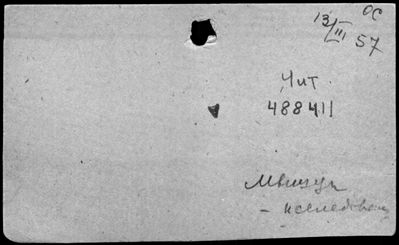 ОС
13/III 57
Чит
488411
- исследован